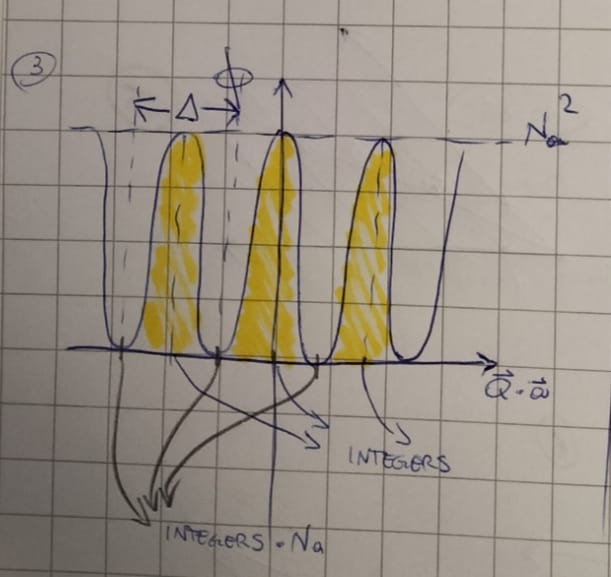 3
Δ
Nₐ²
Q⃗·a⃗
INTEGERS
INTEGERS · Nₐ